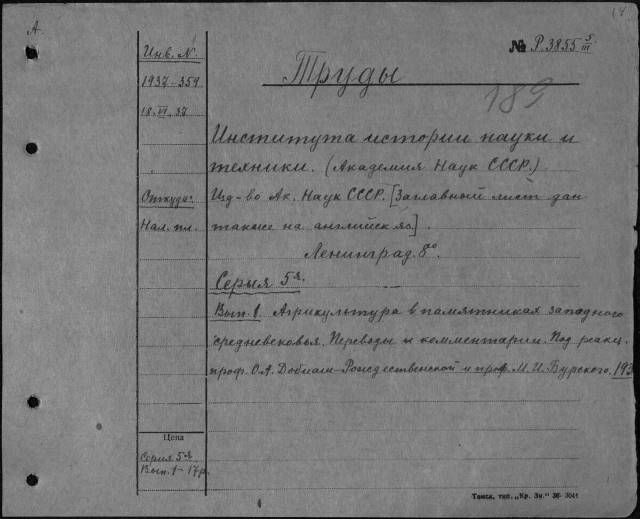 А.
14
Инв. №
1937-359
18.VI.37
Откуда:
Нал. пл.
Цена
Серия 5я
Вып. 1 - 17р.
№ Р.3855 5/III
Труды
189
Института истории науки и
техники. (Академия Наук СССР.)
Изд-во Ак. Наук СССР. [Заглавный лист дан
также на английск яз.].
Ленинград. 8°.
Серия 5я.
Вып. 1. Агрикультура в памятниках западного
средневековья. Переводы и комментарии. Под редакц.
проф. О.А. Добиаш-Рождественской и проф. М.И. Бурского. 193
Томск, тип. „Кр. Зн." 36- 3041